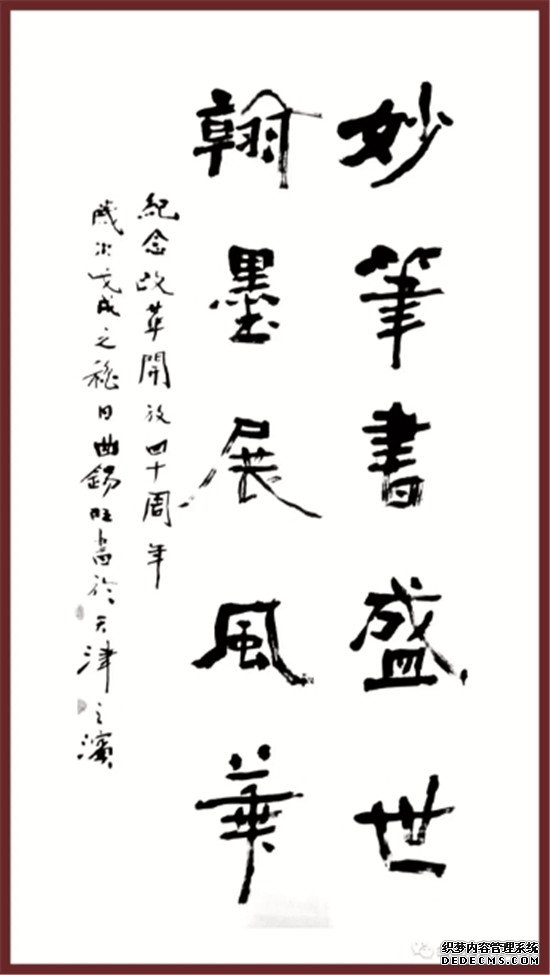 妙筆書盛世
翰墨展風華
紀念改革開放四十周年
歲次戊戌之穐日曲錫旺書於天津之濱
织梦内容管理系统
DEDECMS.COM